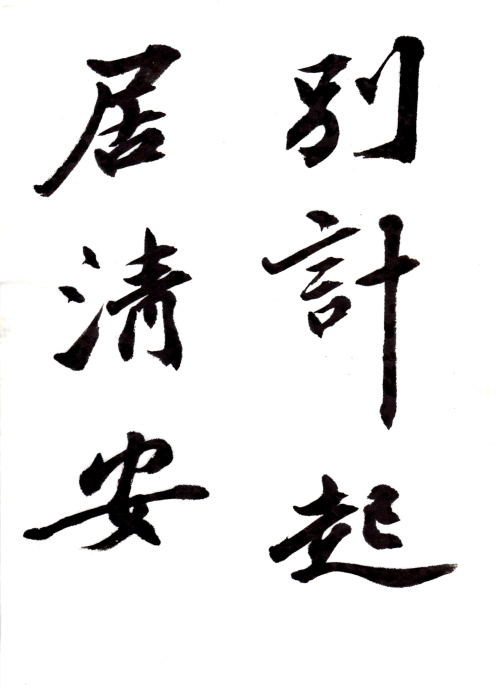 別計起
居清安